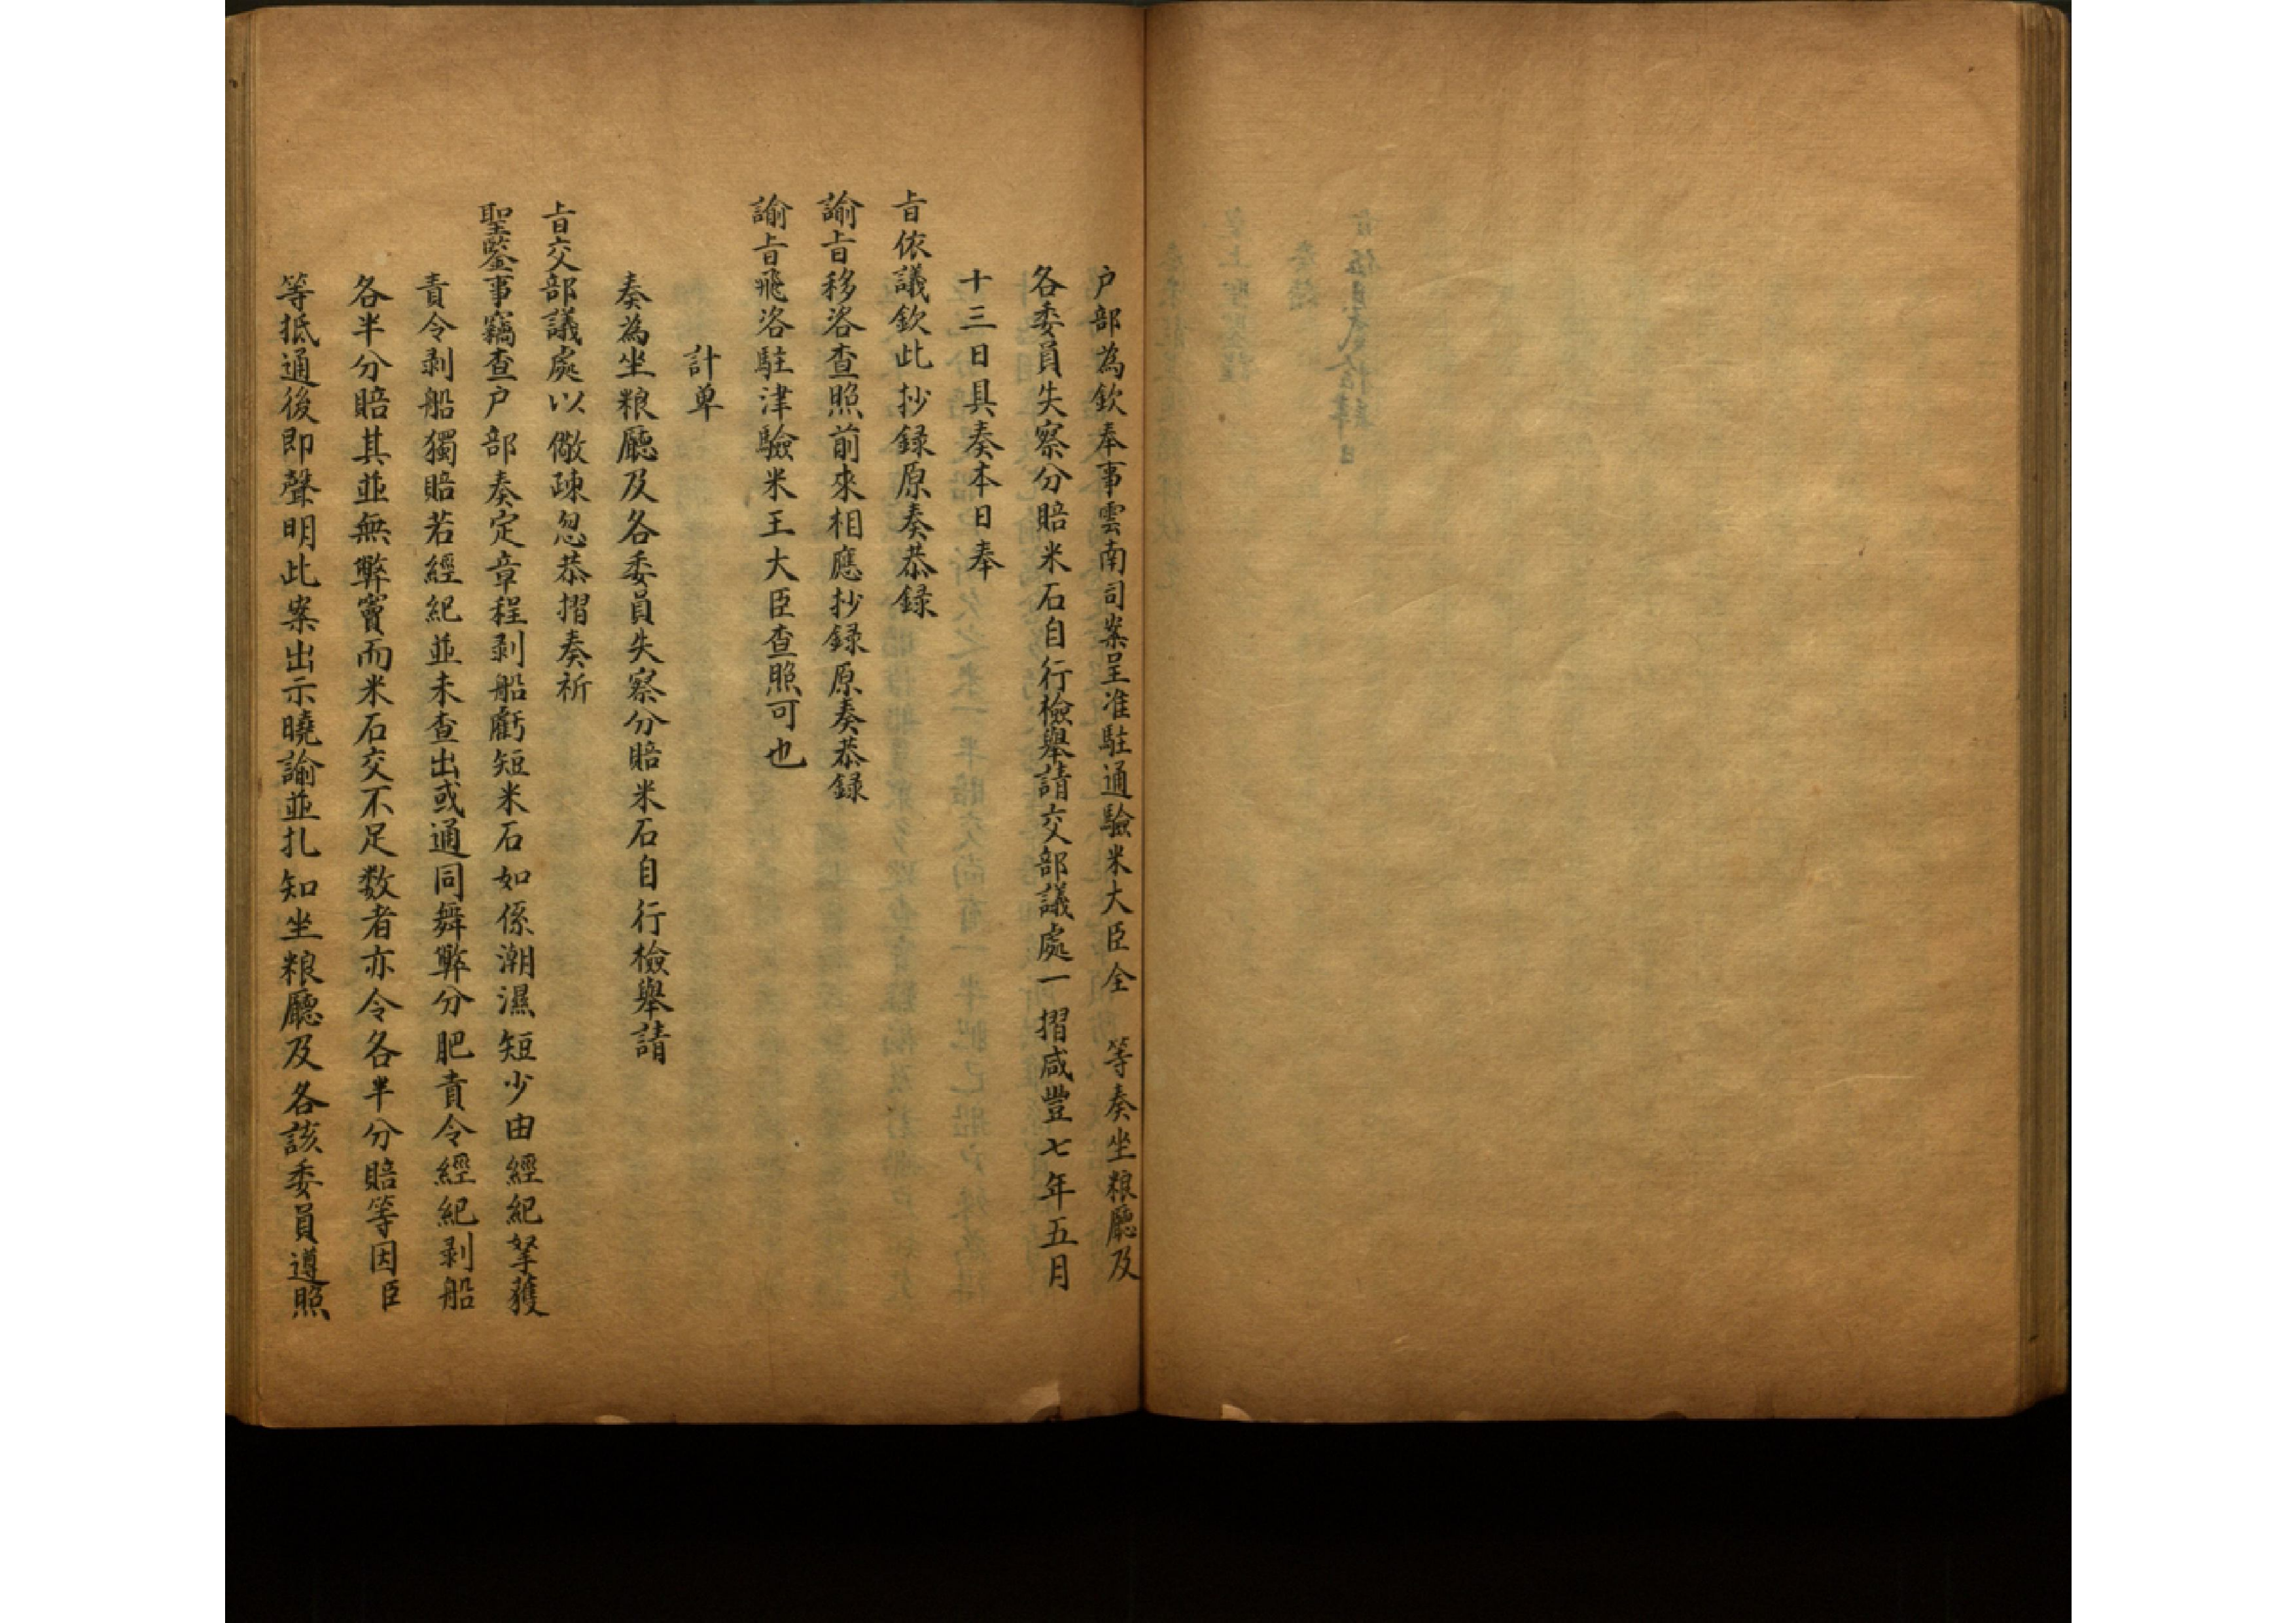 户部為欽奉事雲南司案呈准駐通驗米大臣全　等奏坐粮廳及
各委員失察分賠米石自行檢舉請交部議處一摺咸豐七年五月
十三日具奏本日奉
旨依議欽此抄録原奏恭録
諭旨移咨查照前來相應抄録原奏恭録
諭旨飛咨駐津驗米王大臣查照可也
計单
奏為坐粮廳及各委員失察分賠米石自行檢舉請
旨交部議處以儆疎忽恭摺奏祈
聖鑒事竊查户部奏定章程剥船虧短米石如係潮濕短少由經紀拏獲
責令剥船獨賠若經紀並未查出或通同舞弊分肥責令經紀剥船
各半分賠其並無弊竇而米石交不足数者亦令各半分賠等因臣
等抵通後即聲明此案出示曉諭並扎知坐粮廳及各該委員遵照